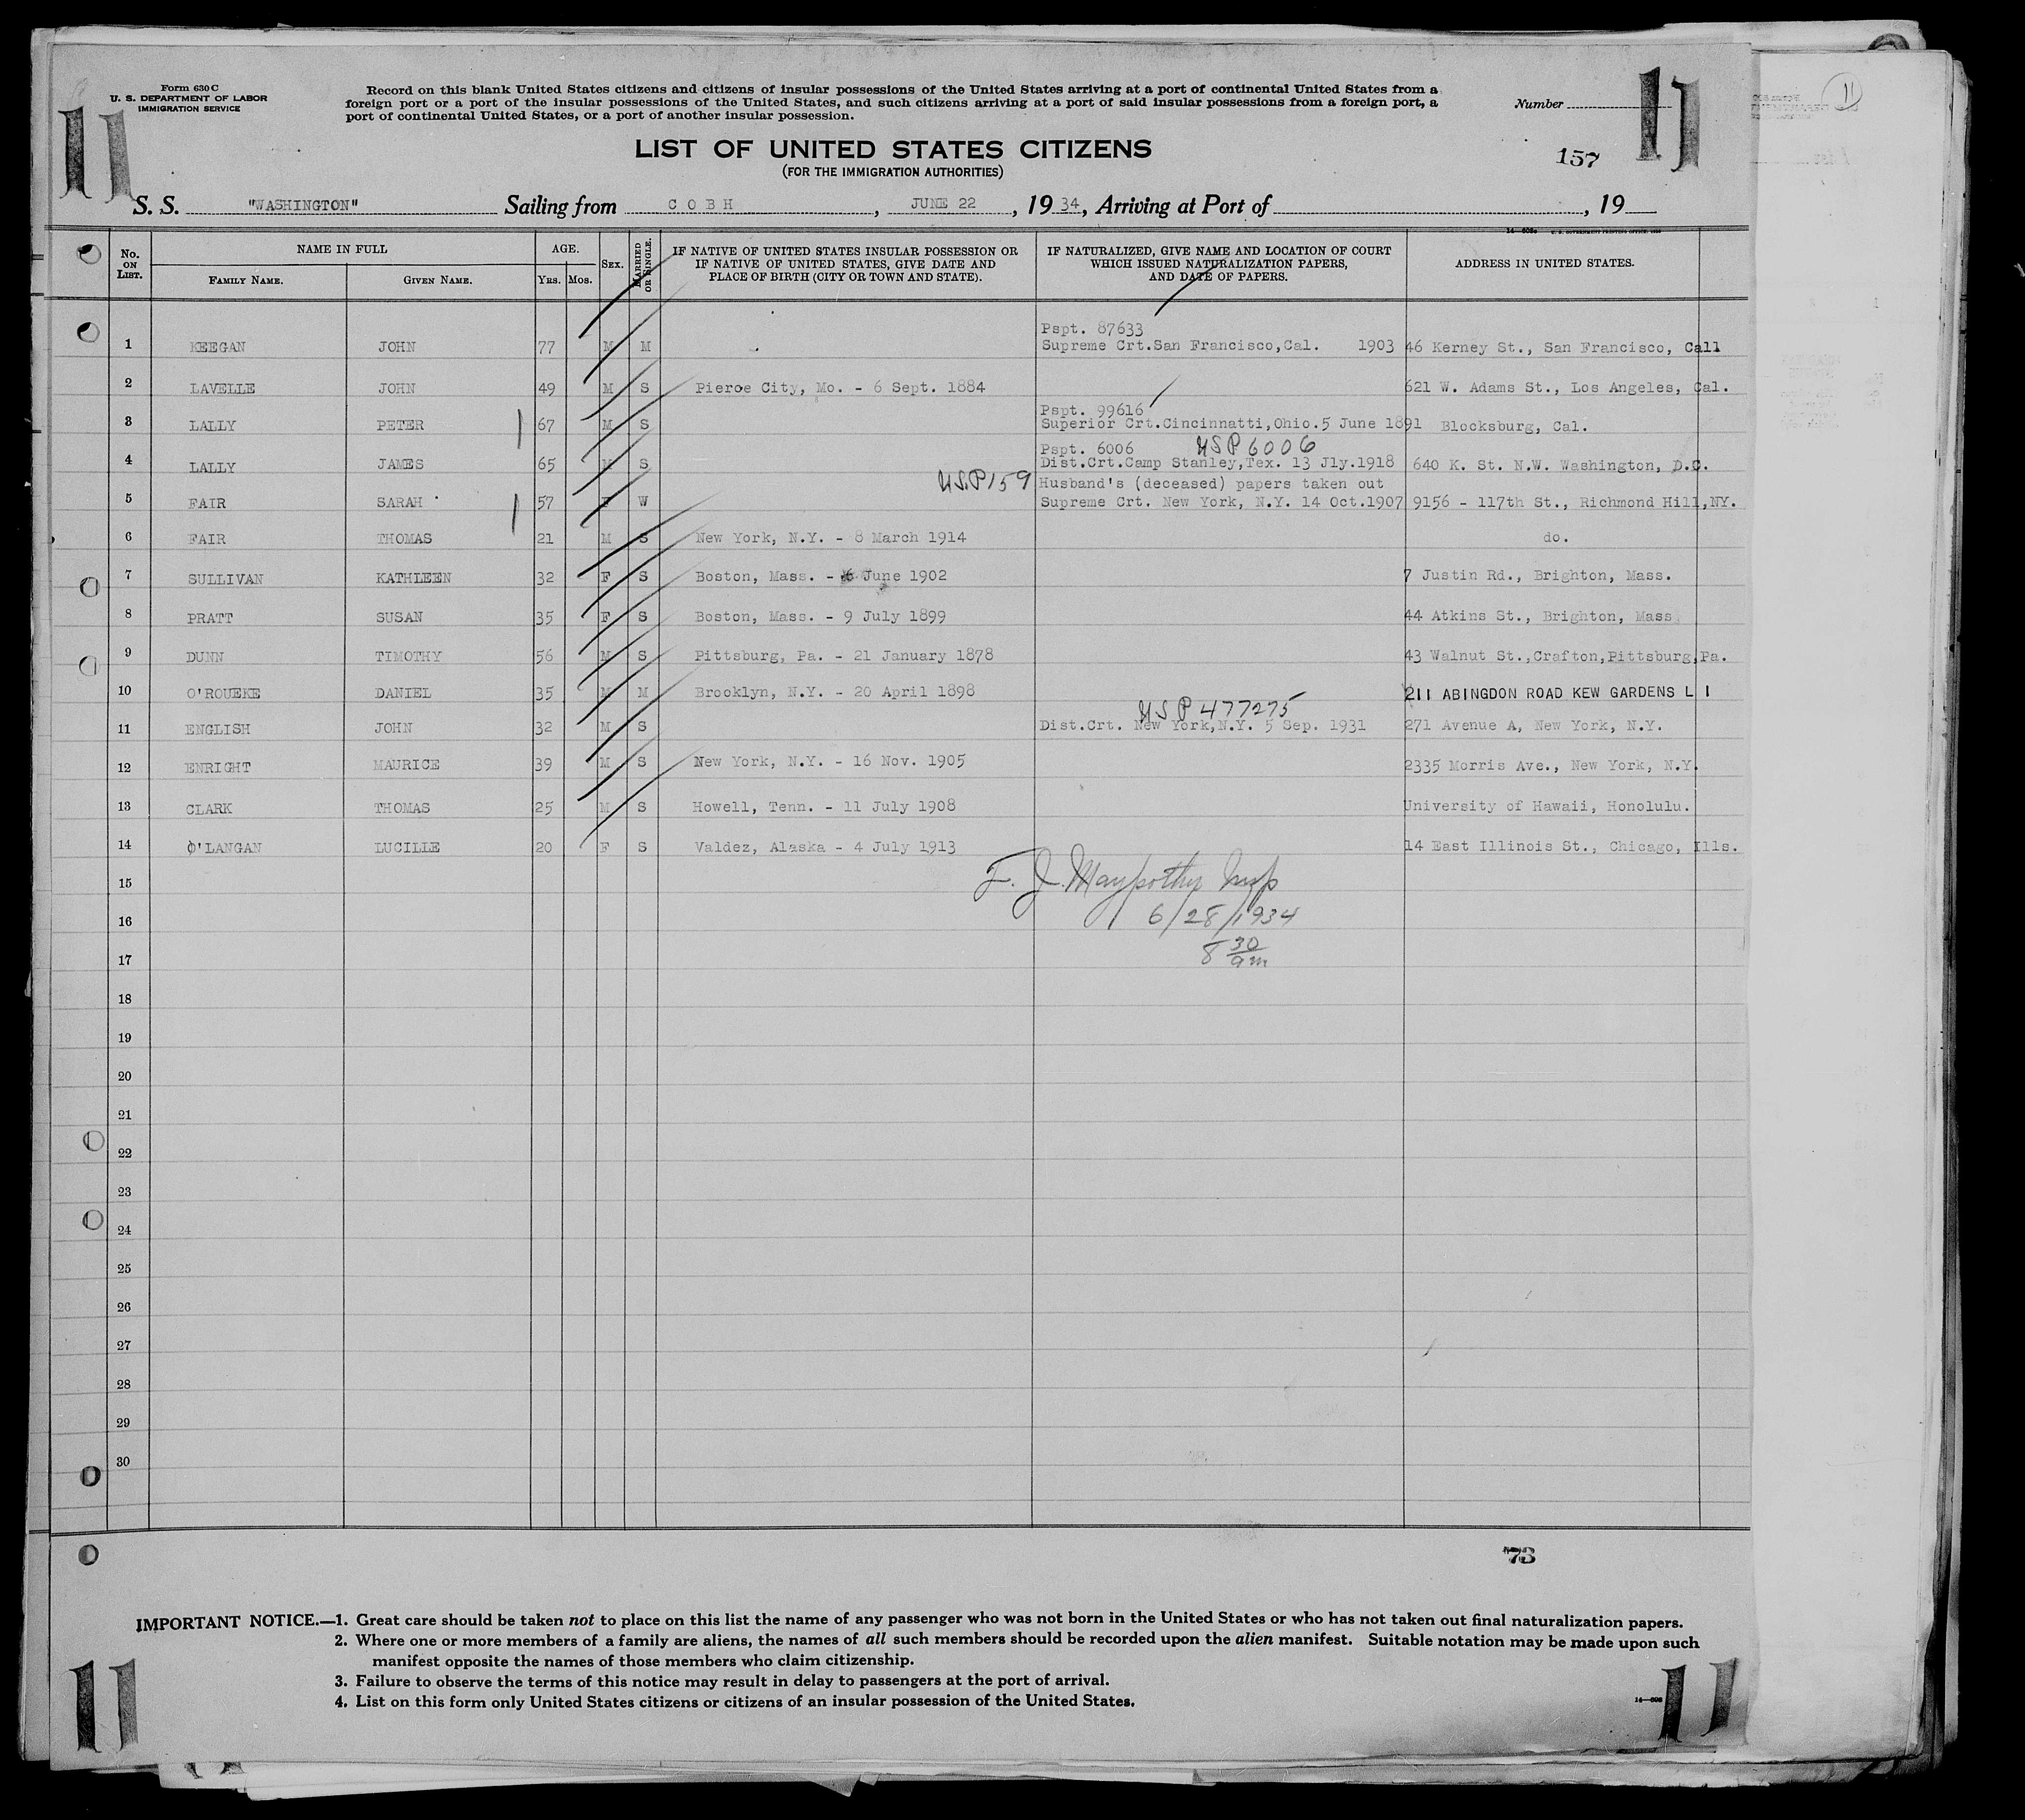 Form 630 C
U. S. DEPARTMENT OF LABOR
IMMIGRATION SERVICE
Record on this blank United States citizens and citizens of insular possessions of the United States arriving at a port of continental United States from a
foreign port or a port of the insular possessions of the United States, and such citizens arriving at a port of said insular possessions from a foreign port, a
port of continental United States, or a port of another insular possession.
Number
11
11
11
LIST OF UNITED STATES CITIZENS
(FOR THE IMMIGRATION AUTHORITIES)
157
S. S. "WASHINGTON" Sailing from C O B H, JUNE 22, 19 34, Arriving at Port of , 19
No. ON LIST. NAME IN FULL AGE. SEX. MARRIED OR SINGLE. IF NATIVE OF UNITED STATES INSULAR POSSESSION OR IF NATIVE OF UNITED STATES, GIVE DATE AND PLACE OF BIRTH (CITY OR TOWN AND STATE). IF NATURALIZED, GIVE NAME AND LOCATION OF COURT WHICH ISSUED NATURALIZATION PAPERS, AND DATE OF PAPERS. ADDRESS IN UNITED STATES.
FAMILY NAME. GIVEN NAME. YRS. MOS.
Pspt. 87633
1 KEEGAN JOHN 77 M M Supreme Crt.San Francisco,Cal. 1903 46 Kerney St., San Francisco, Call
2 LAVELLE JOHN 49 M S Pierce City, Mo. - 6 Sept. 1884 621 W. Adams St., Los Angeles, Cal.
Pspt. 99616
3 LALLY PETER 67 M S Superior Crt.Cincinnatti,Ohio.5 June 1891 Blocksburg, Cal.
Pspt. 6006 USP 6006
4 LALLY JAMES 65 M S Dist.Crt.Camp Stanley,Tex. 13 Jly.1918 640 K. St. N.W. Washington, D.C.
USP 159 Husband's (deceased) papers taken out
5 FAIR SARAH 57 F W Supreme Crt. New York, N.Y. 14 Oct.1907 9156 - 117th St., Richmond Hill,NY.
6 FAIR THOMAS 21 M S New York, N.Y. - 8 March 1914 do.
7 SULLIVAN KATHLEEN 32 F S Boston, Mass. - 6 June 1902 7 Justin Rd., Brighton, Mass.
8 PRATT SUSAN 35 F S Boston, Mass. - 9 July 1899 44 Atkins St., Brighton, Mass.
9 DUNN TIMOTHY 56 M S Pittsburg, Pa. - 21 January 1878 43 Walnut St.,Crafton,Pittsburg,Pa.
10 O'ROUEKE DANIEL 35 M M Brooklyn, N.Y. - 20 April 1898 211 ABINGDON ROAD KEW GARDENS L I
USP 477275
11 ENGLISH JOHN 32 M S Dist.Crt. New York,N.Y. 5 Sep. 1931 271 Avenue A, New York, N.Y.
12 ENRIGHT MAURICE 39 M S New York, N.Y. - 16 Nov. 1905 2335 Morris Ave., New York, N.Y.
13 CLARK THOMAS 25 M S Howell, Tenn. - 11 July 1908 University of Hawaii, Honolulu.
14 O'LANGAN LUCILLE 20 F S Valdez, Alaska - 4 July 1913 14 East Illinois St., Chicago, Ills.
15
F. J. Insp
16
6/28/1934
17
8 30 am
18
19
20
21
22
23
24
25
26
27
28
29
30
73
IMPORTANT NOTICE.—1. Great care should be taken not to place on this list the name of any passenger who was not born in the United States or who has not taken out final naturalization papers.
2. Where one or more members of a family are aliens, the names of all such members should be recorded upon the alien manifest. Suitable notation may be made upon such
manifest opposite the names of those members who claim citizenship.
3. Failure to observe the terms of this notice may result in delay to passengers at the port of arrival.
4. List on this form only United States citizens or citizens of an insular possession of the United States.
11
11